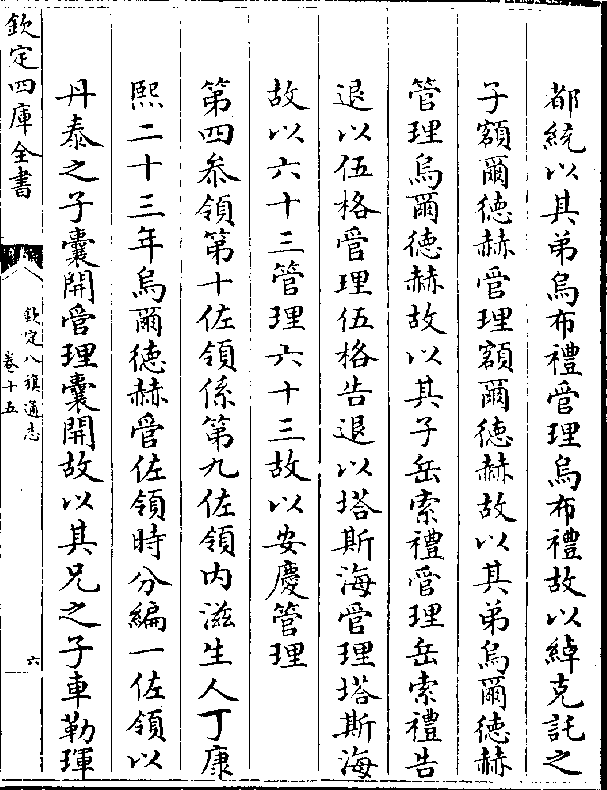 都統以其弟烏布禮管理烏布禮故以綽克託之
子額爾徳赫管理額爾徳赫故以其弟烏爾徳赫
管理烏爾徳赫故以其子岳索禮管理岳索禮告
退以伍格管理伍格告退以塔斯海管理塔斯海
故以六十三管理六十三故以安慶管理
第四叅領第十佐領係第九佐領内滋生人丁康
熙二十三年烏爾徳赫管佐領時分編一佐領以
丹泰之子囊開管理囊開故以其兄之子車勒琿
欽定四庫全書
欽定八旗通志
卷十五
六